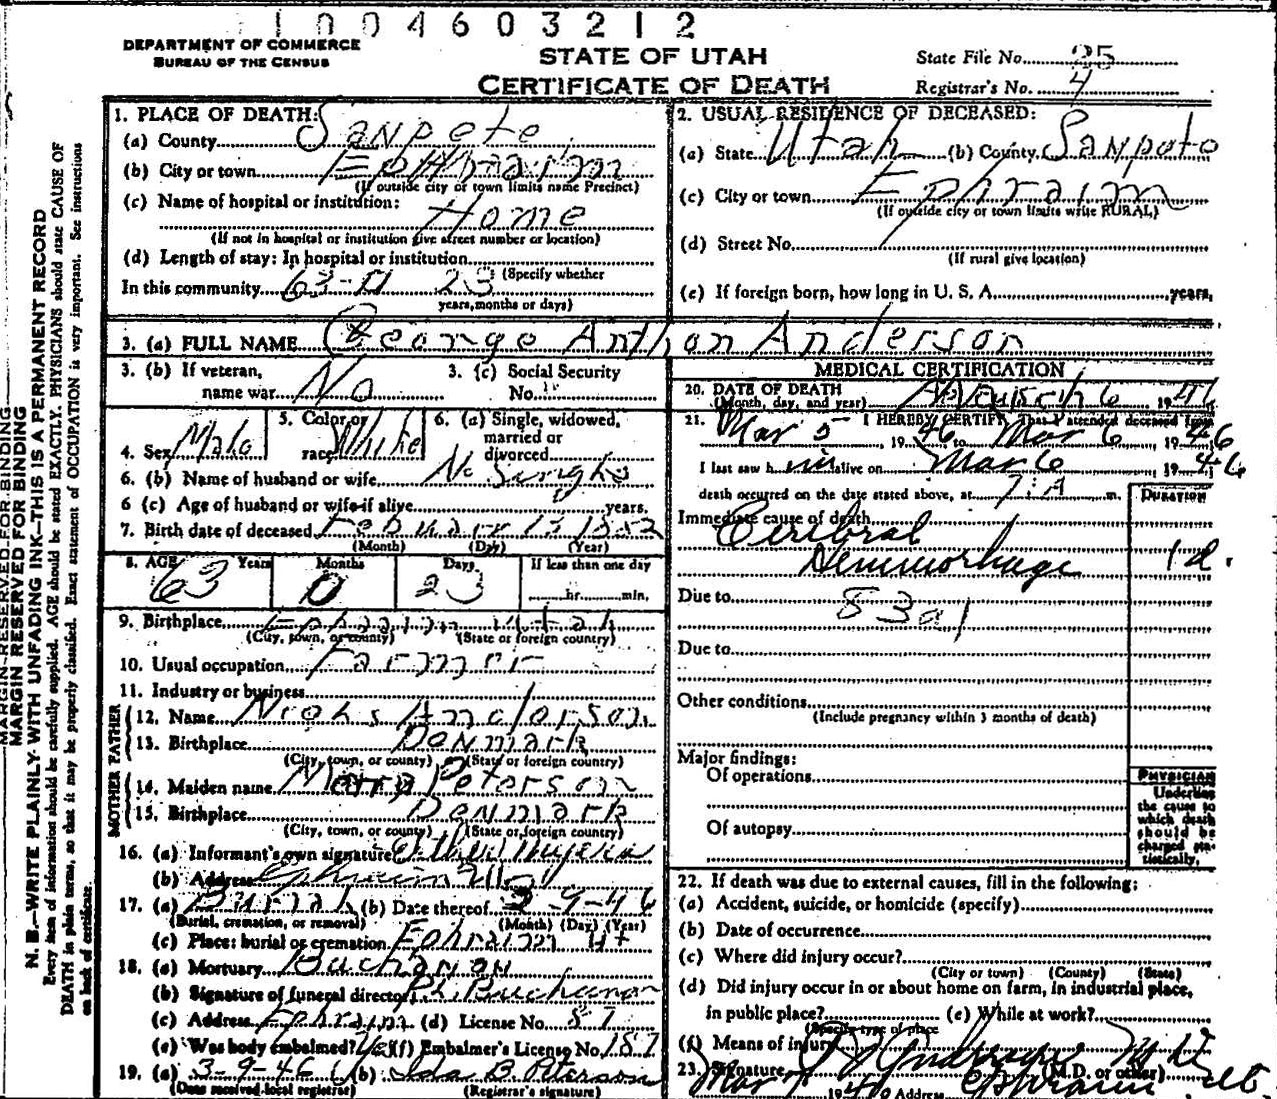 1004603212
DEPARTMENT OF COMMERCE
BUREAU OF THE CENSUS
STATE OF UTAH
CERTIFICATE OF DEATH
State File No. 25
Registrar's No. 4
1. PLACE OF DEATH:
(a) County Sanpete
(b) City or town Ephraim
(If outside city or town limits name Precinct)
(c) Name of hospital or institution:
Home
(If not in hospital or institution give street number or location)
(d) Length of stay: In hospital or institution
(Specify whether
In this community 63-0 23
years, months or days)
2. USUAL RESIDENCE OF DECEASED:
(a) State Utah (b) County Sanpete
(c) City or town Ephraim
(If outside city or town limits write RURAL)
(d) Street No.
(If rural give location)
(e) If foreign born, how long in U. S. A. years,
3. (a) FULL NAME George Anthon Anderson
3. (b) If veteran, name war No
3. (c) Social Security No.
4. Sex Male
5. Color or race White
6. (a) Single, widowed, married or divorced
6. (b) Name of husband or wife No Single
6 (c) Age of husband or wife if alive years.
7. Birth date of deceased
(Month) (Day) (Year)
8. AGE Years Months Days If less than one day
63 0 23 hr. min.
9. Birthplace Ephraim Utah
(City, town, or county) (State or foreign country)
10. Usual occupation Farmer
11. Industry or business
FATHER
12. Name Anderson
13. Birthplace Denmark
(City, town, or county) (State or foreign country)
MOTHER
14. Maiden name Mary Peterson
15. Birthplace Denmark
(City, town, or county) (State or foreign country)
16. (a) Informant's own signature
(b) Address Ephraim Utah
17. (a) Burial (b) Date thereof 3-9-46
(Burial, cremation, or removal) (Month) (Day) (Year)
(c) Place: burial or cremation Ephraim Ut
18. (a) Mortuary Buchanan
(b) Signature of funeral director Buchanan
(c) Address Ephraim (d) License No. 87
(e) Was body embalmed? Yes (f) Embalmer's License No. 187
19. (a) 3-9-46 (b) Ida B. Peterson
(Date received local registrar) (Registrar's signature)
MEDICAL CERTIFICATION
20. DATE OF DEATH
(Month, day, and year) March 6 1946
21. I HEREBY CERTIFY That I attended deceased from
Mar 5 1946 to Mar 6 1946
I last saw h im alive on Mar 6 1946
death occurred on the date stated above, at 7:A m.
DURATION
Immediate cause of death
Cerebral
Hemmorhage 1d.
Due to 83a1
Due to
Other conditions
(Include pregnancy within 3 months of death)
Major findings:
Of operations
Of autopsy
PHYSICIAN
Underline
the cause to
which death
should be
charged sta-
tistically.
22. If death was due to external causes, fill in the following:
(a) Accident, suicide, or homicide (specify)
(b) Date of occurrence
(c) Where did injury occur?
(City or town) (County) (State)
(d) Did injury occur in or about home on farm, in industrial place,
in public place? (e) While at work?
(Specify type of place
(f) Means of injury
23. Signature (M.D. or other)
Mar 1946 Address Ephraim Ut.
MARGIN RESERVED FOR BINDING
MARGIN RESERVED FOR BINDING
N. B.—WRITE PLAINLY WITH UNFADING INK—THIS IS A PERMANENT RECORD
Every item of information should be carefully supplied. AGE should be stated EXACTLY. PHYSICIANS should state CAUSE OF
DEATH in plain terms, so that it may be properly classified. Exact statement of OCCUPATION is very important. See instructions
on back of certificate.